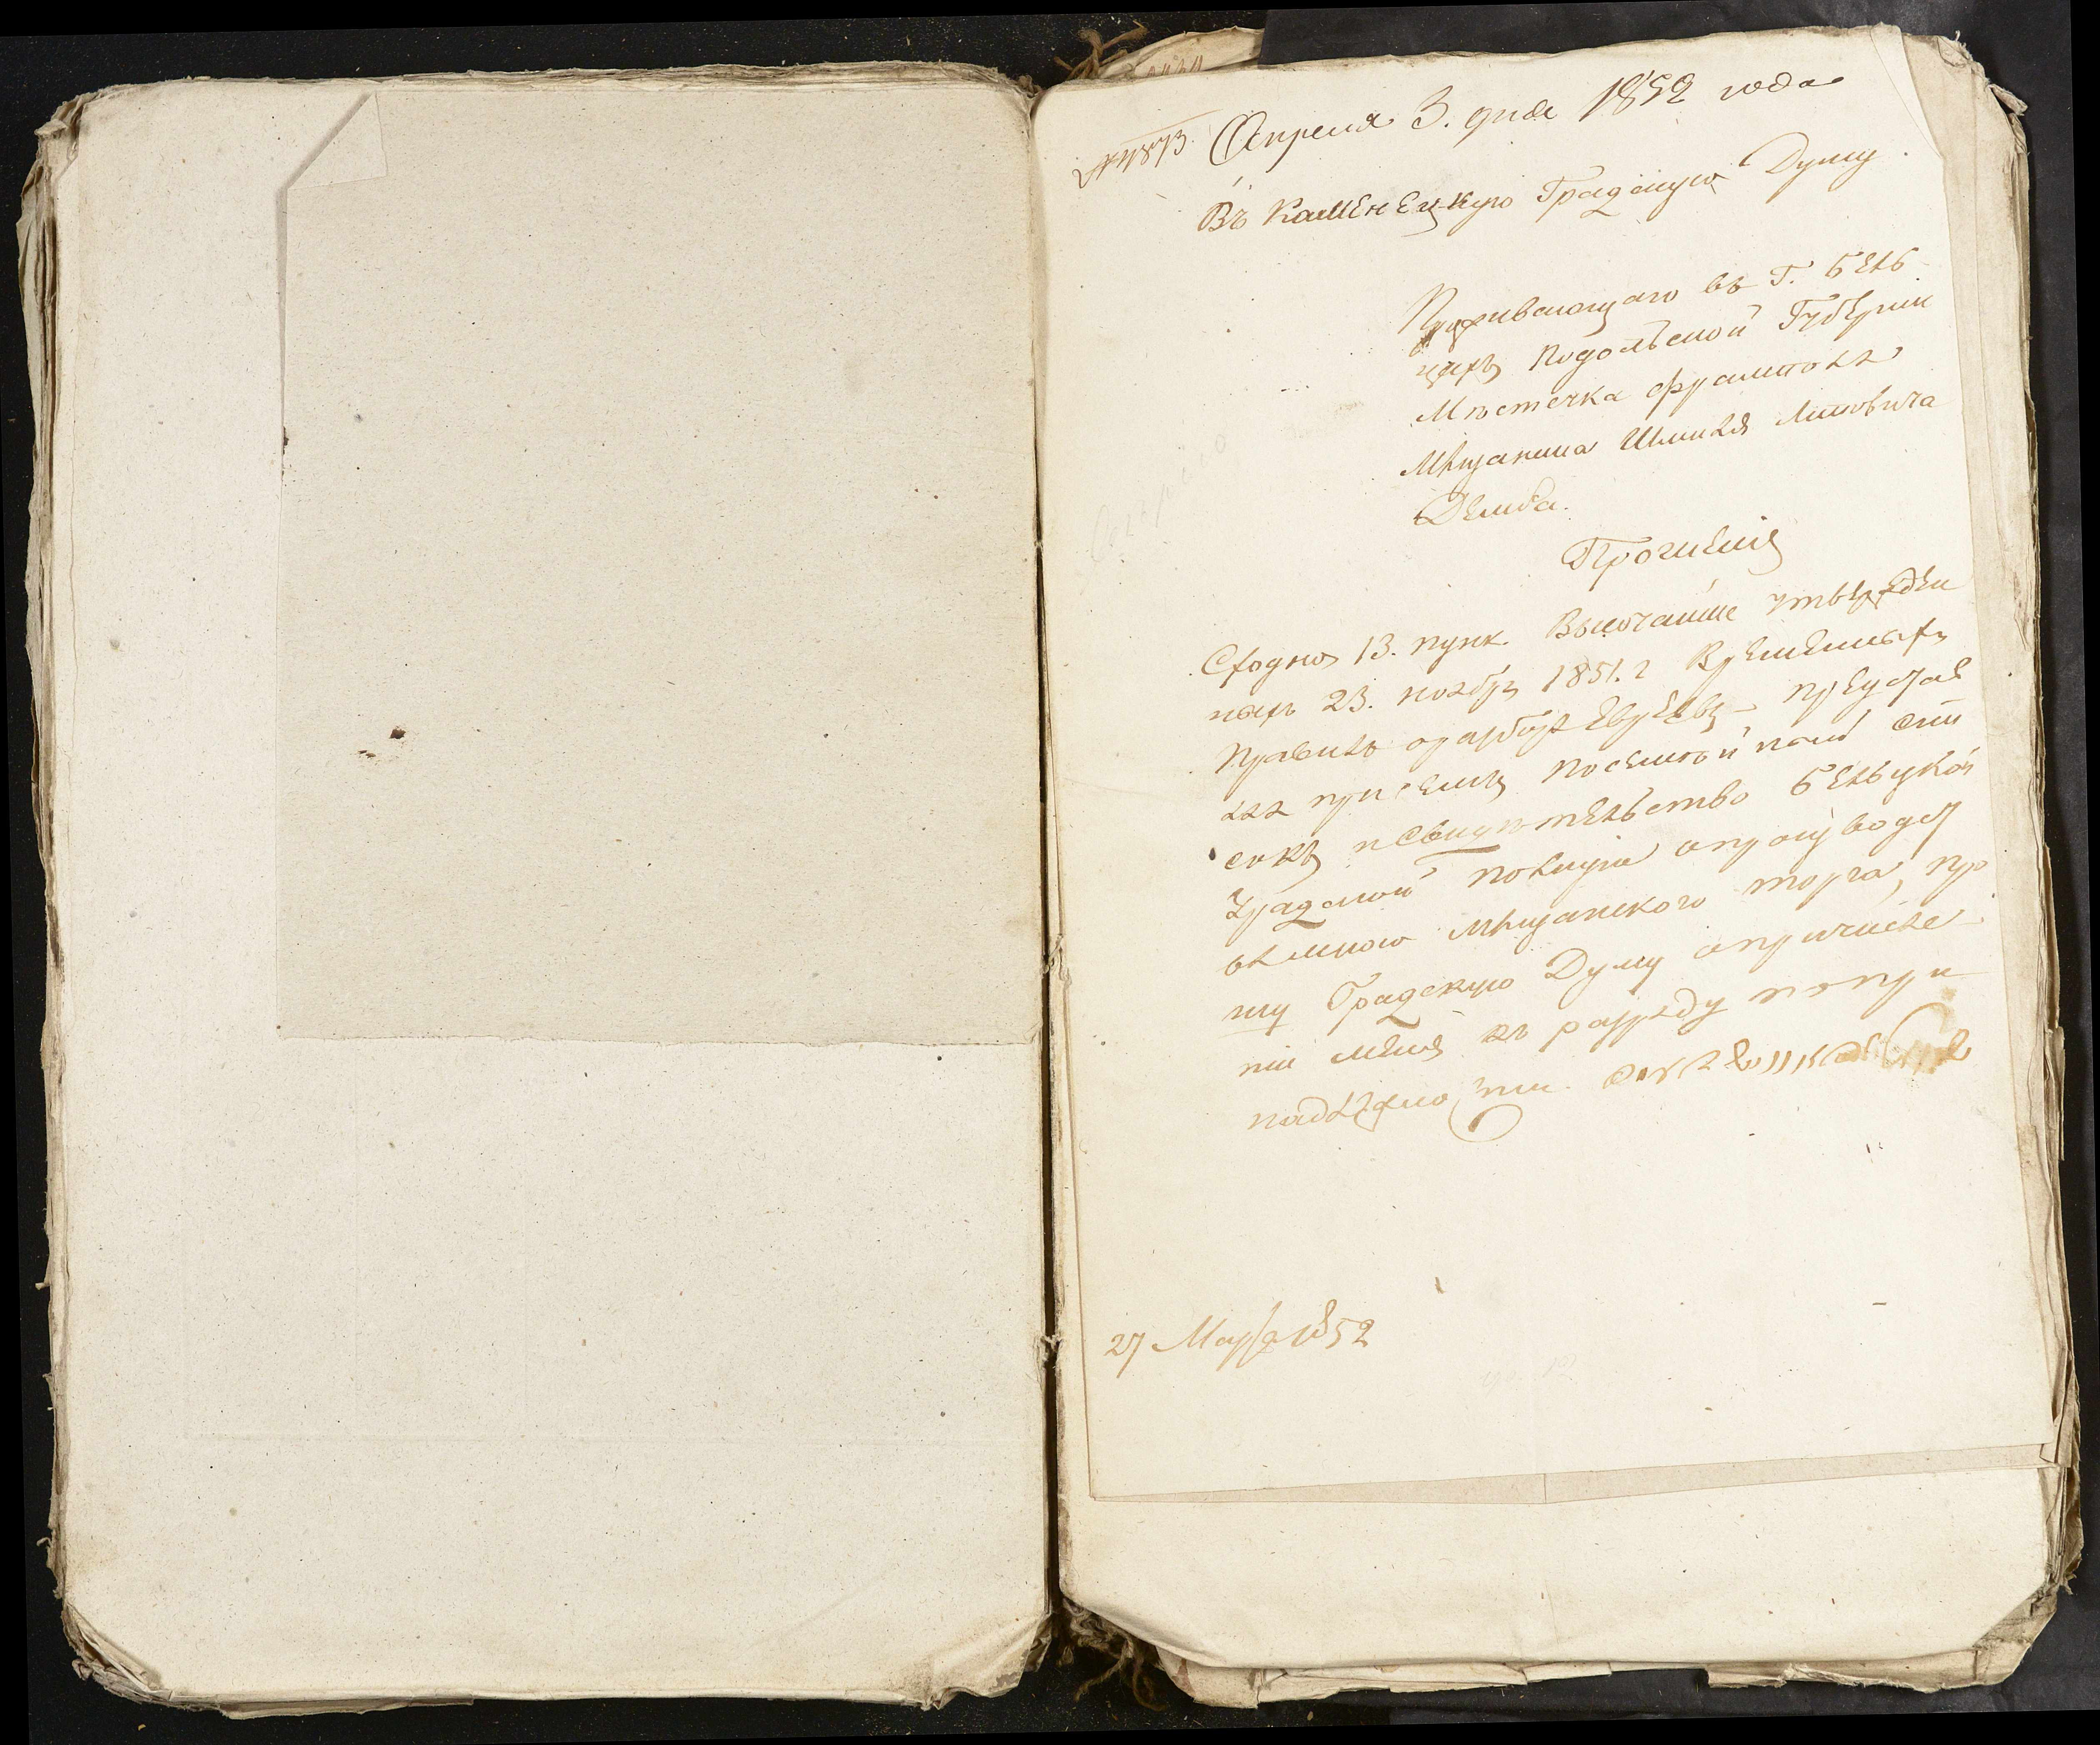 Апреля 3. дня 1852 года
Въ Каменецкую Градскую Думу.
Проживающаго въ Г. Бель
цахъ Подольской Губерніи
Мѣстечка Фрамполя
Мѣщанина Шмиля Лейбовича
Прошенія
Сходно 13. пунк. Высочайше утвержден
ныхъ 23. ноября 1851. г Временныхъ
Правилъ о разборѣ Евреевъ представ
ляя при семъ посемейной спи
сокъ и свидѣтельство Бельцкой
Градской полиціи о производст
вѣ мною мѣщанского торга, про
шу Градскую Думу о причисле
ніи меня къ разряду по при
надлежности.
27 Марта 1852